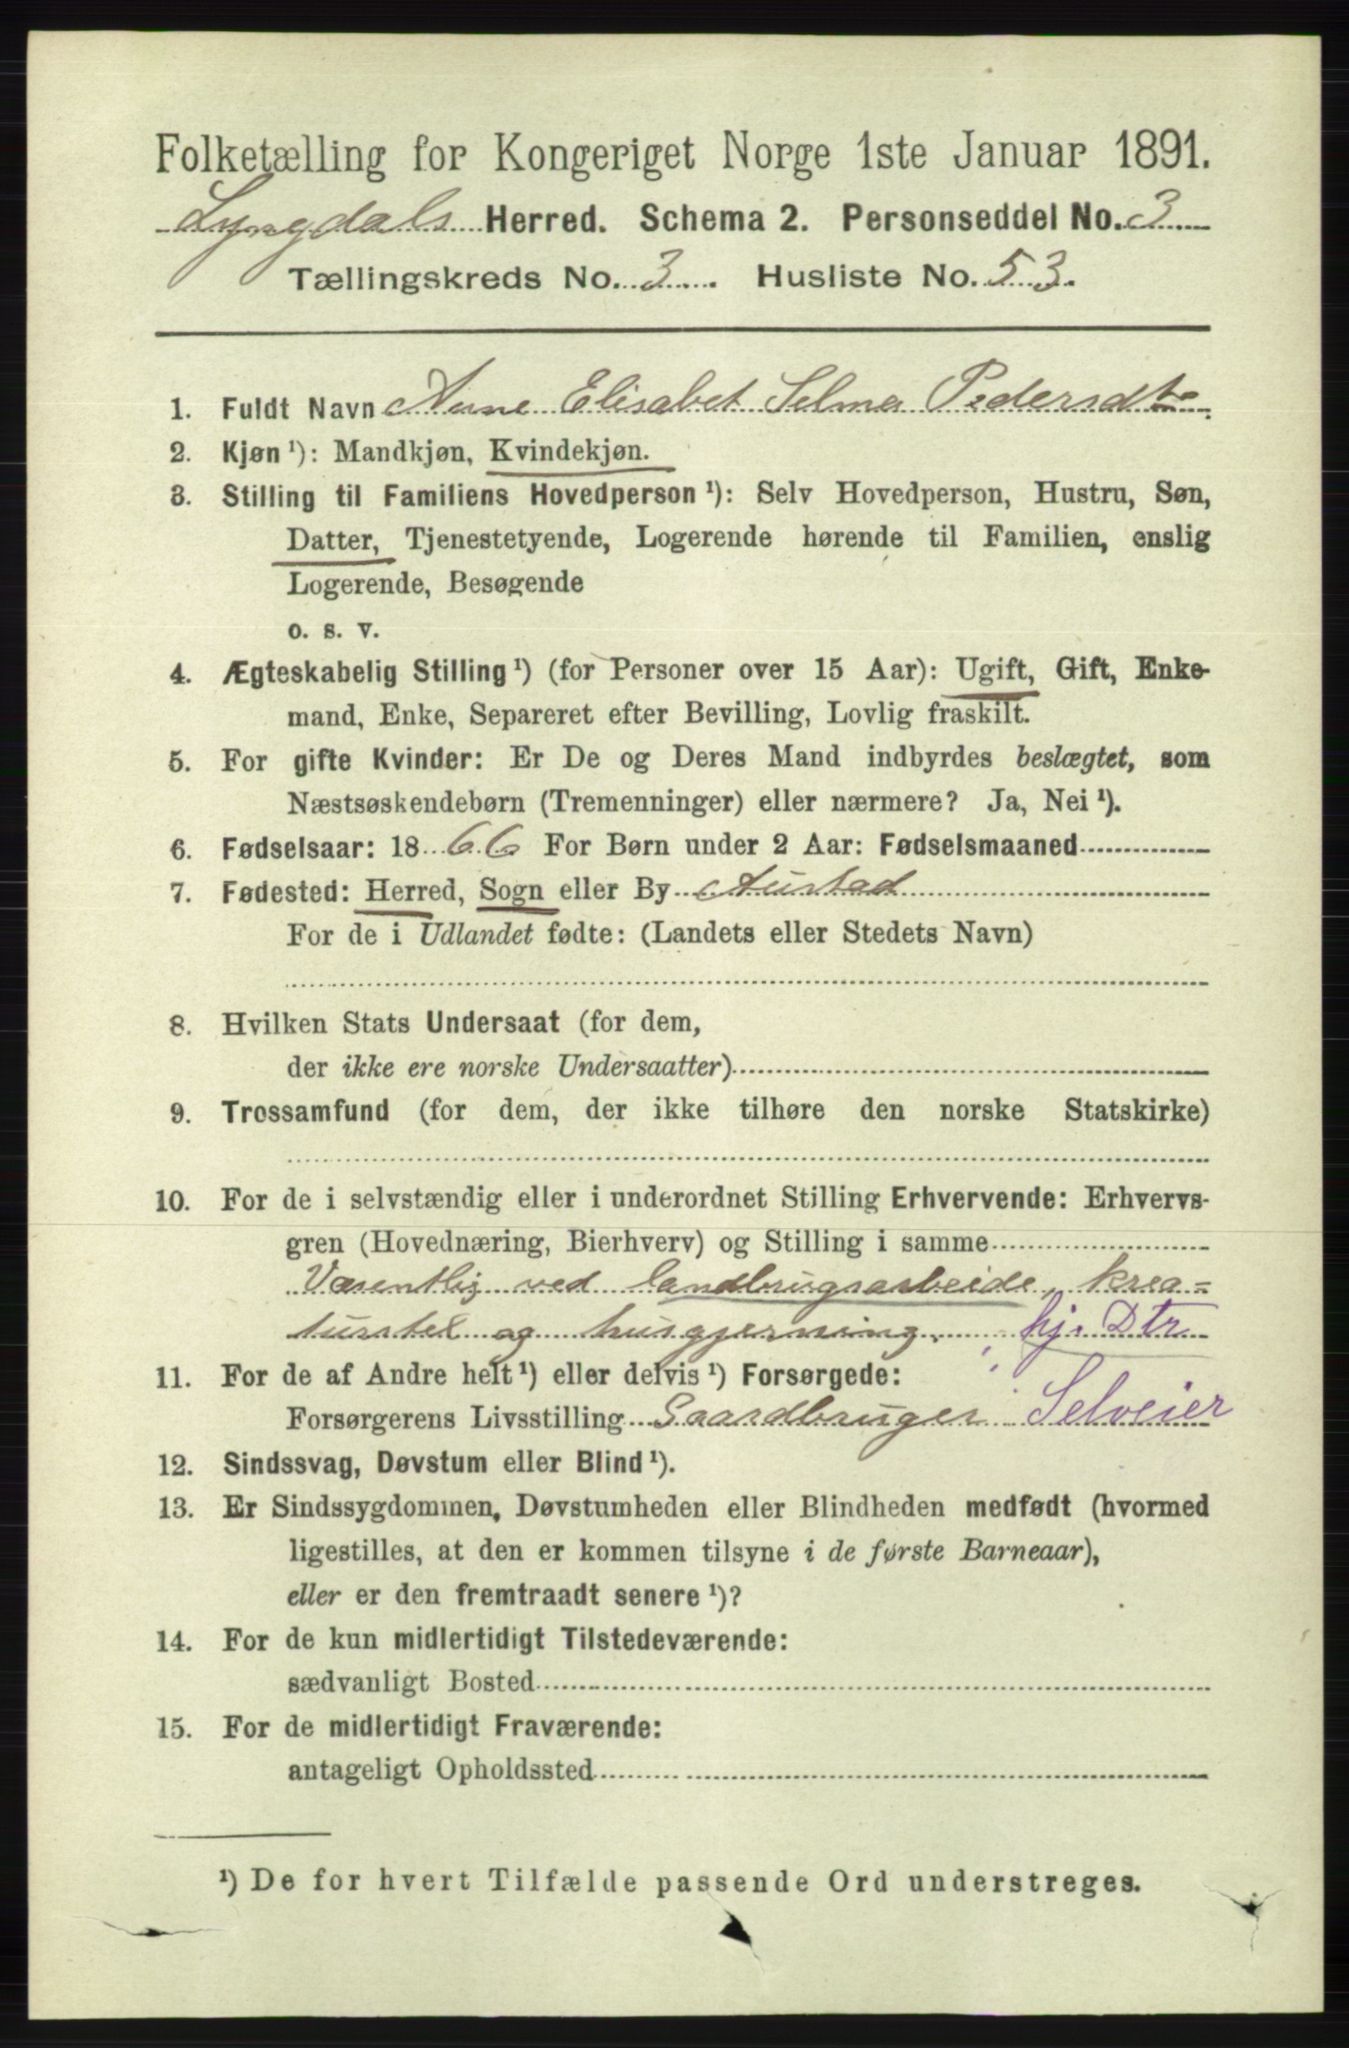 Folketælling for Kongeriget Norge 1ste Januar 1891.
Lyngdals Herred. Schema 2. Personseddel No. 3
Tællingskreds No. 3. Husliste No. 53.
1. Fuldt Navn Anne Elisabet Selma Pedersdtr
2. Kjøn ¹): Mandkjøn, Kvindekjøn.
3. Stilling til Familiens Hovedperson ¹): Selv Hovedperson, Hustru, Søn,
Datter, Tjenestetyende, Logerende hørende til Familien, enslig
Logerende, Besøgende
o. s. v.
4. Ægteskabelig Stilling ¹) (for Personer over 15 Aar): Ugift, Gift, Enke-
mand, Enke, Separeret efter Bevilling, Lovlig fraskilt.
5. For gifte Kvinder: Er De og Deres Mand indbyrdes beslægtet, som
Næstsøskendebørn (Tremenninger) eller nærmere? Ja, Nei ¹).
6. Fødselsaar: 1866 For Børn under 2 Aar: Fødselsmaaned
7. Fødested: Herred, Sogn eller By Austad
For de i Udlandet fødte: (Landets eller Stedets Navn)
8. Hvilken Stats Undersaat (for dem,
der ikke ere norske Undersaatter)
9. Trossamfund (for dem, der ikke tilhøre den norske Statskirke)
10. For de i selvstændig eller i underordnet Stilling Erhvervende: Erhvervs-
gren (Hovednæring, Bierhverv) og Stilling i samme
Væsentlig ved landbrugsarbeide, krea-
turstel og husgjerning. hj. Dtr
11. For de af Andre helt ¹) eller delvis ¹) Forsørgede:
Forsørgerens Livsstilling Gaardbruger Selveier
12. Sindssvag, Døvstum eller Blind ¹).
13. Er Sindssygdommen, Døvstumheden eller Blindheden medfødt (hvormed
ligestilles, at den er kommen tilsyne i de første Barneaar),
eller er den fremtraadt senere ¹)?
14. For de kun midlertidigt Tilstedeværende:
sædvanligt Bosted
15. For de midlertidigt Fraværende:
antageligt Opholdssted
¹) De for hvert Tilfælde passende Ord understreges.